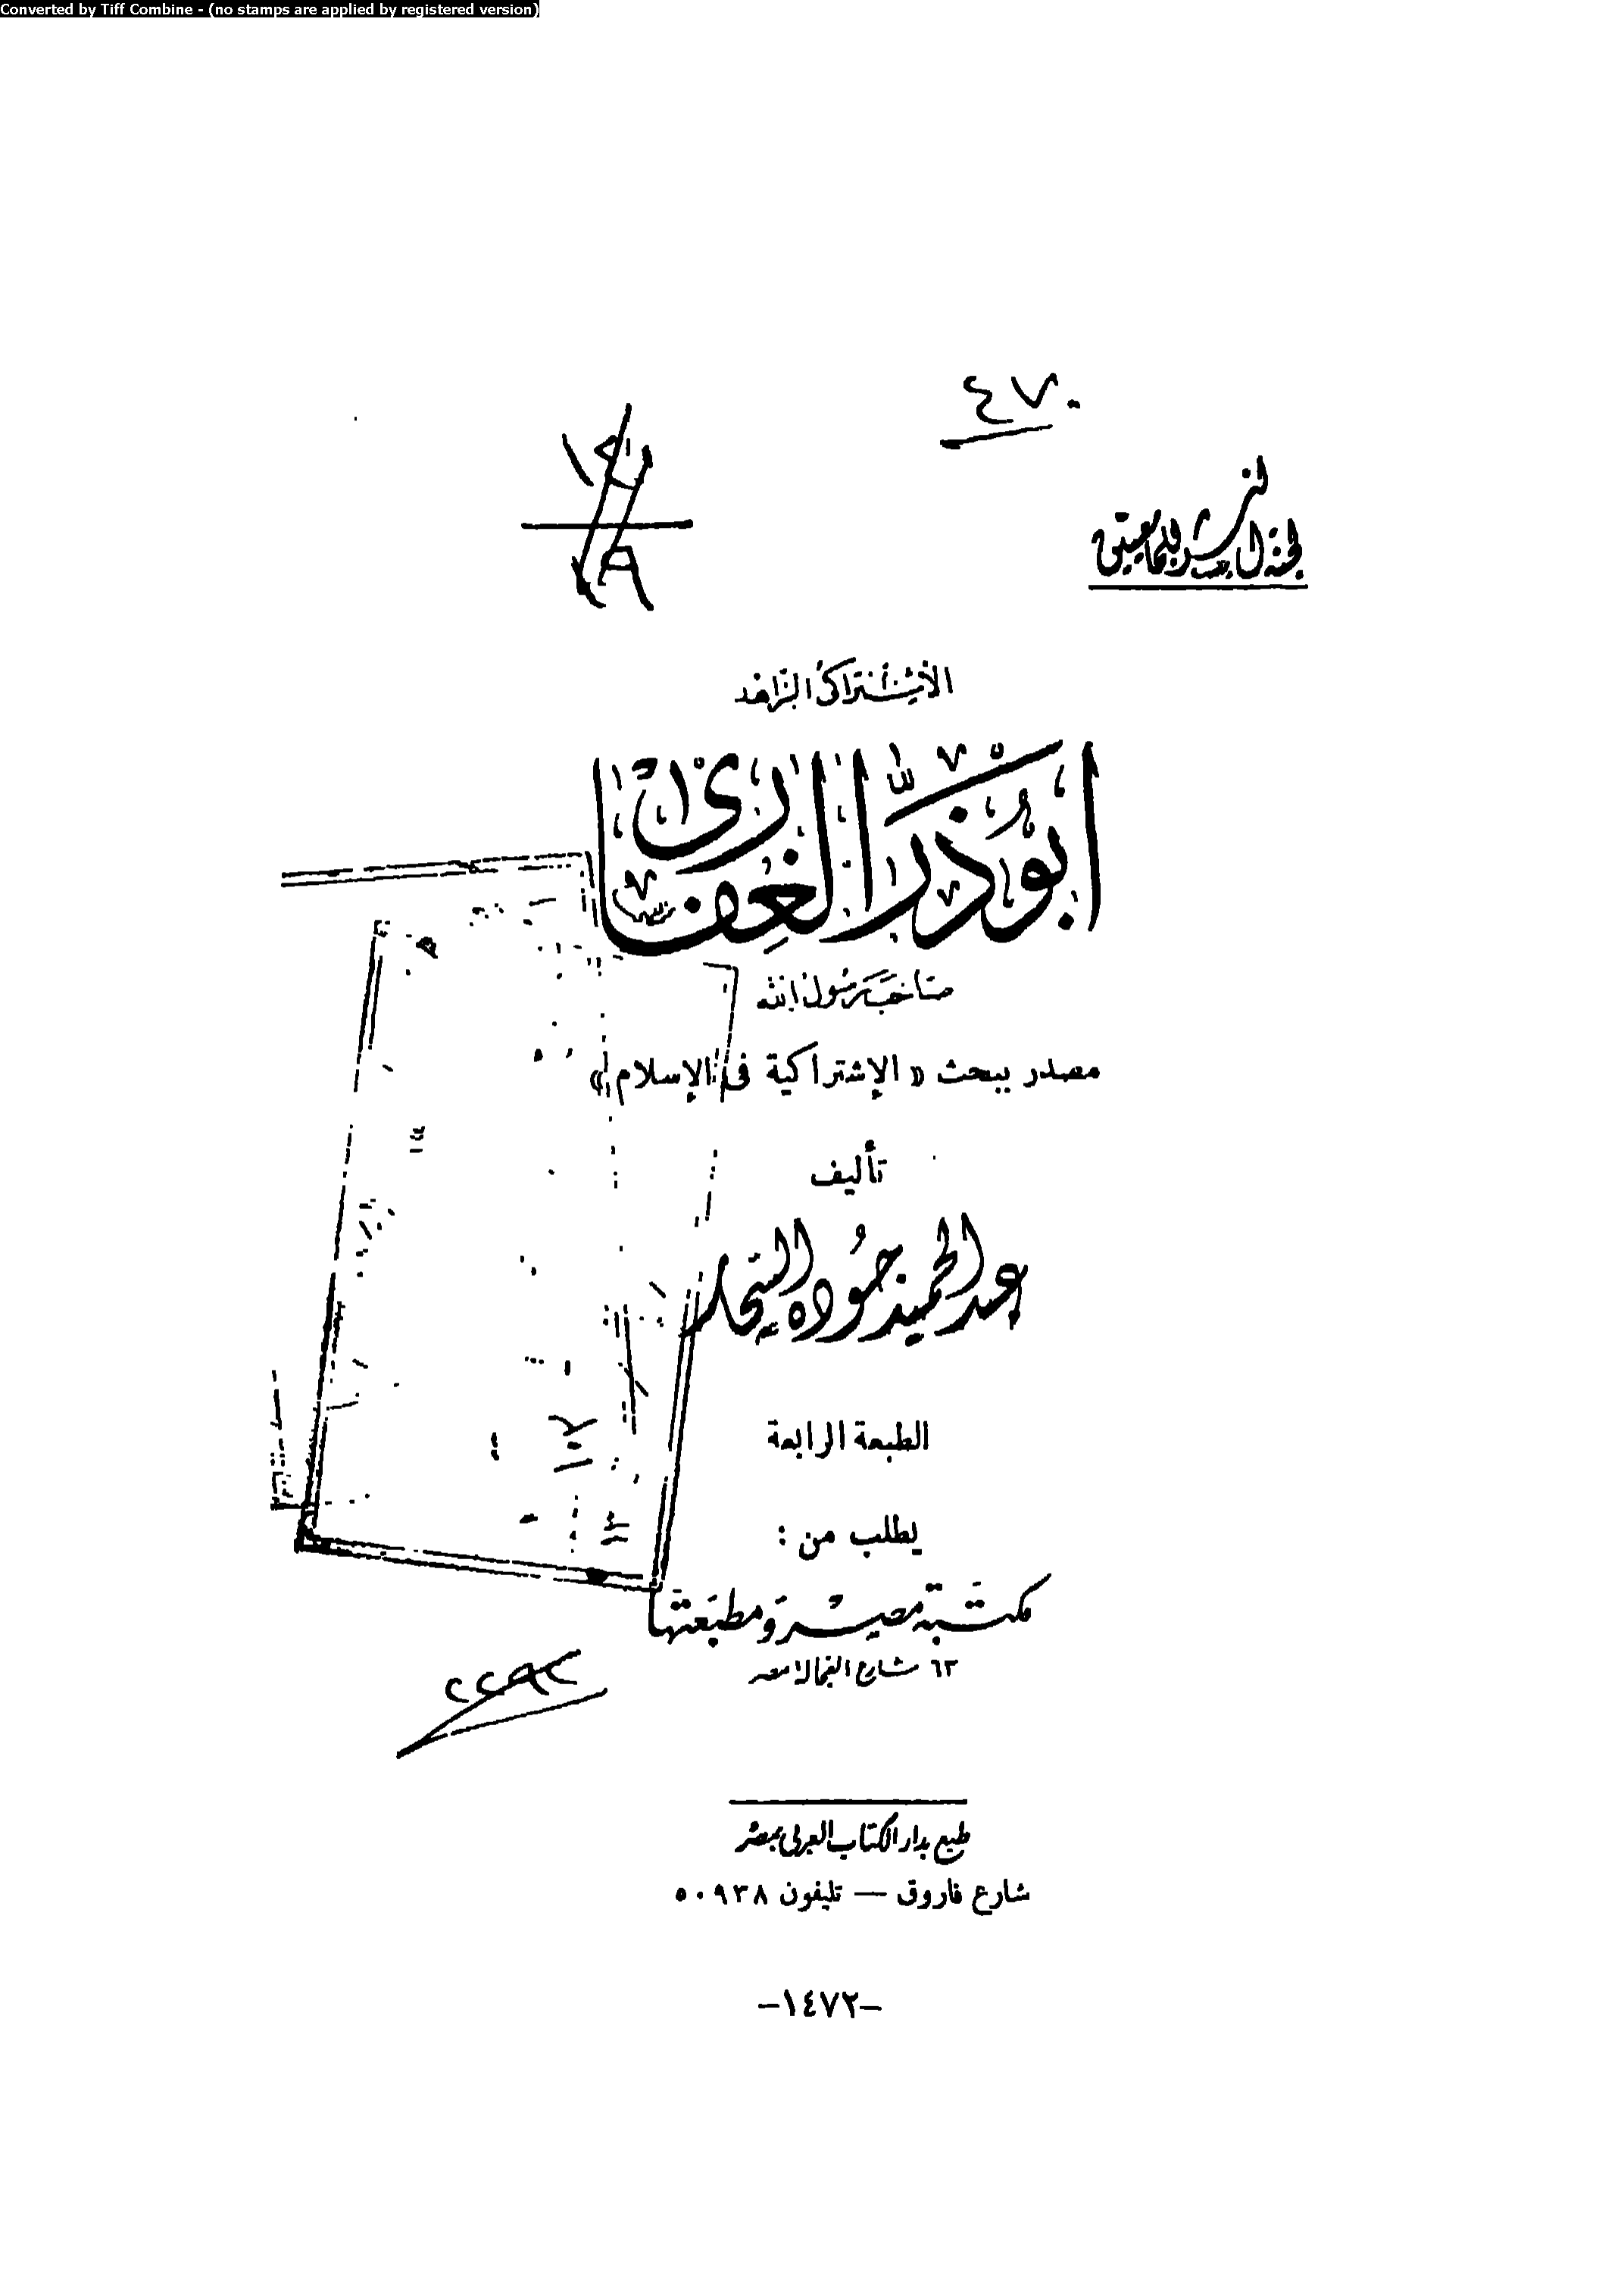 Converted by Tiff Combine - (no stamps are applied by registered version)
٤٧٠
لجنة النشر للجامعيين
الاشتراكى الزاهد
أبو ذر الغفارى
صاحب رسول الله
مصدر ببحث « الإشتراكية فى الإسلام »
تأليف
عبد الحميد جوده السحار
الطبعة الرابعة
يطلب من :
مكتبة مصر ومطبعتها
٦٣ شارع الفجالة مصر
٢٢٩٢
طبع بدار الكتاب العربى بمصر
شارع فاروق — تليفون ٥٠٩٣٨
-١٤٧٢-